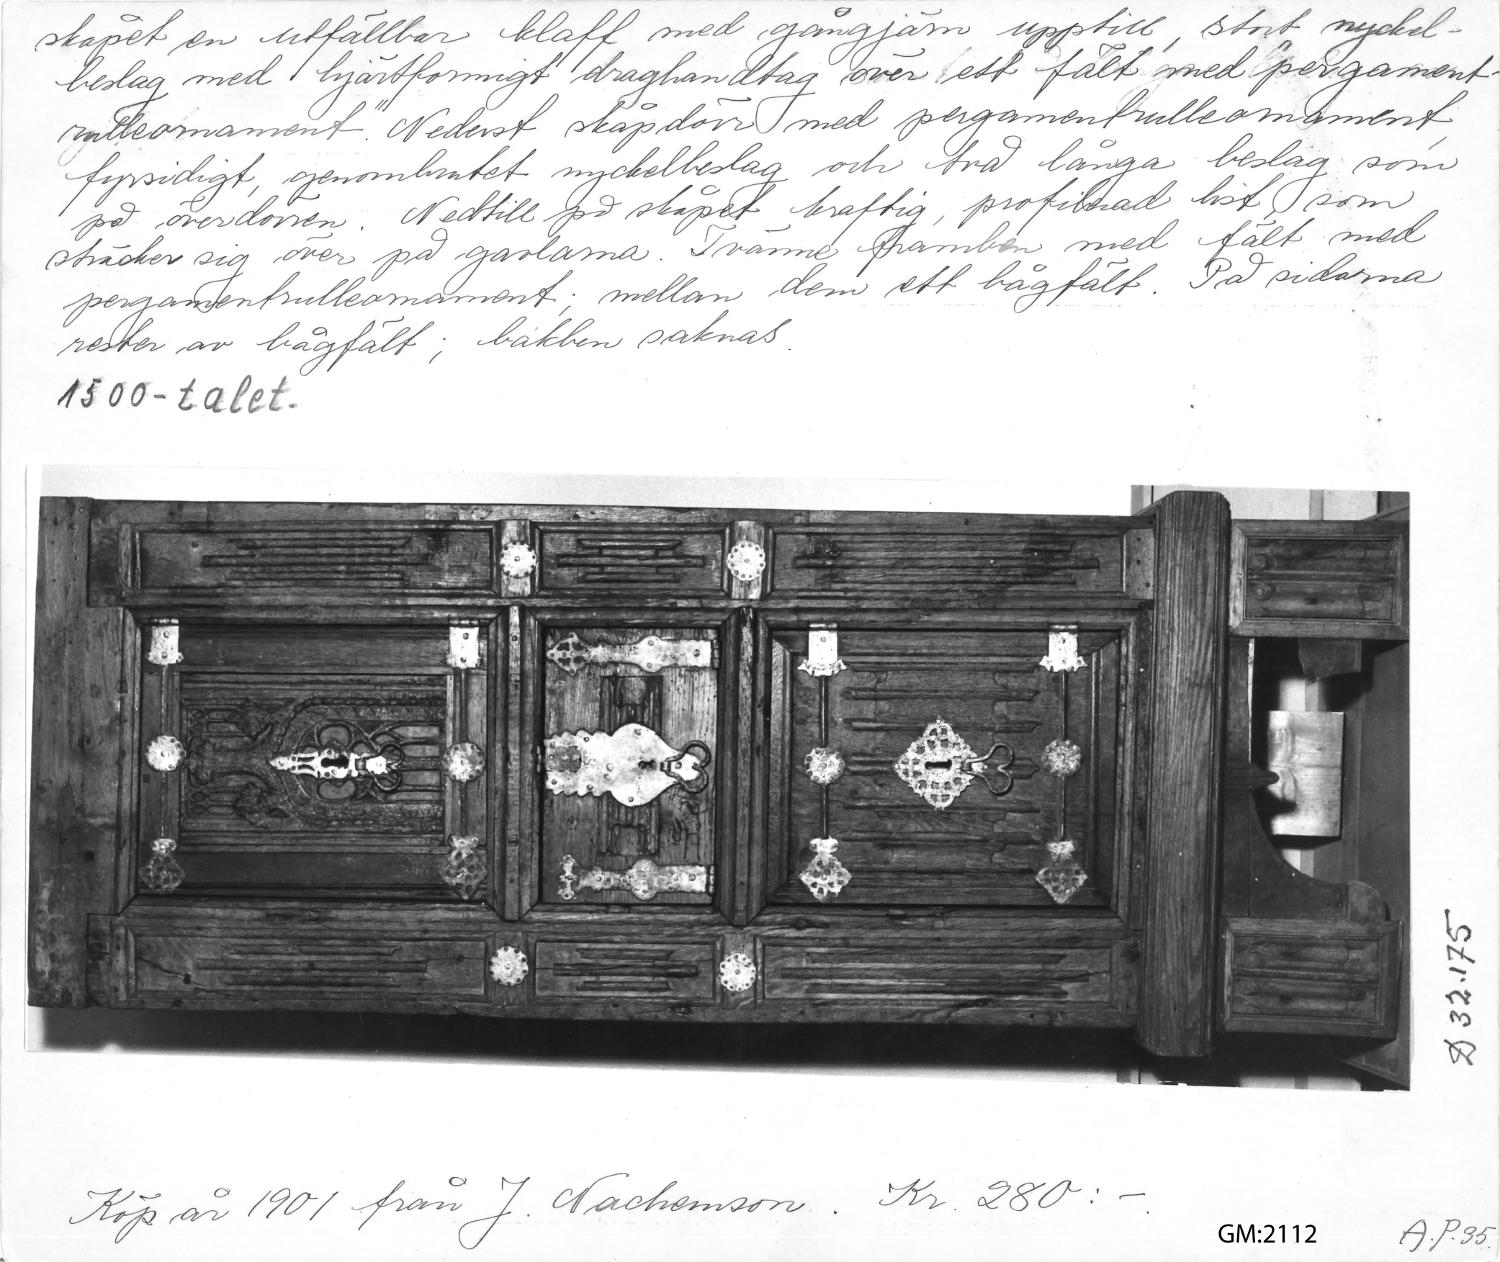 skåpet en utfällbar klaff med gångjärn upptill, stort nyckel-
beslag med hjärtformigt draghandtag över ett fält med "pergament-
rulleornament". Nederst skåpdörr med pergamentrulleornament,
fyrsidigt, genombrutet nyckelbeslag och två långa beslag som
på överdörren. Nedtill på skåpet kraftig, profilerad list, som
sträcker sig över på gavlarna. Tvänne framben med fält med
pergamentrulleornament; mellan dem ett bågfält. På sidorna
rester av bågfält; bakben saknas.
1500-talet.
D 32.175
Köp år 1901 från J. Nachemson. Kr. 280:-.
GM:2112
A.P.35.